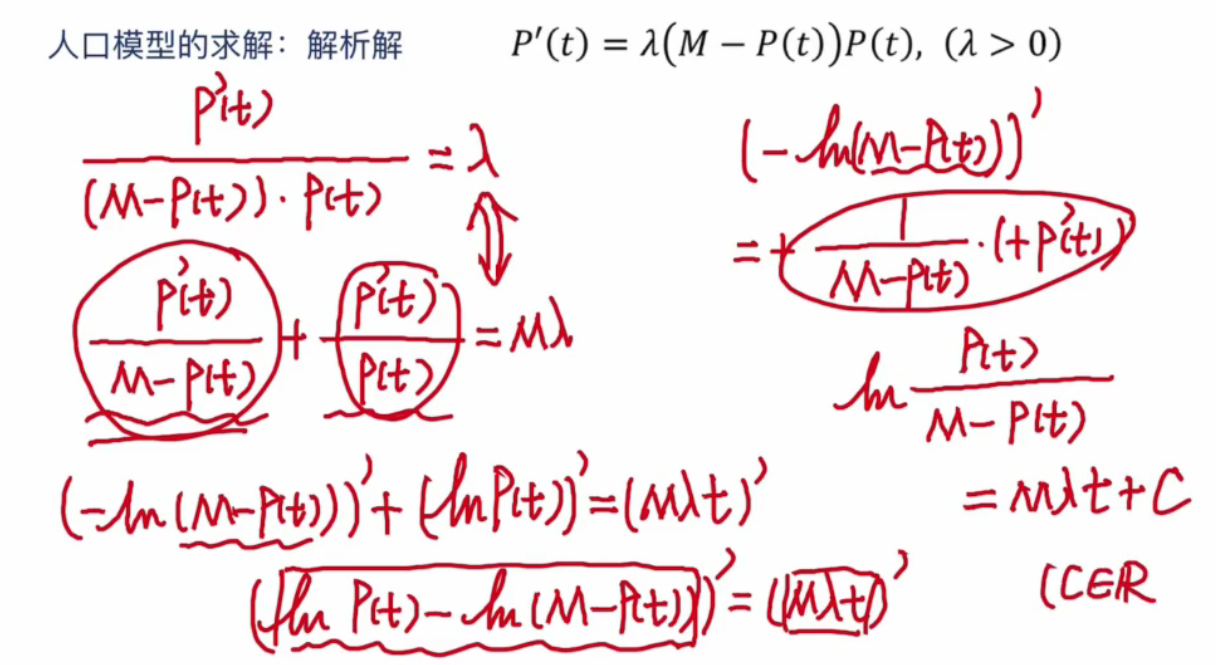 人口模型的求解：解析解 P′(t) = λ(M − P(t))P(t), (λ > 0)
P'(t) / ((M-P(t))·P(t)) = λ
P'(t) / (M-P(t)) + P'(t) / P(t) = Mλ
(-ln(M-P(t)))' + (ln P(t))' = (Mλt)'
(ln P(t) - ln(M-P(t)))' = (Mλt)'
(-ln(M-P(t)))'
= + 1 / (M-P(t)) · (+P'(t))
ln P(t) / (M-P(t))
= Mλt + C
(C∈R